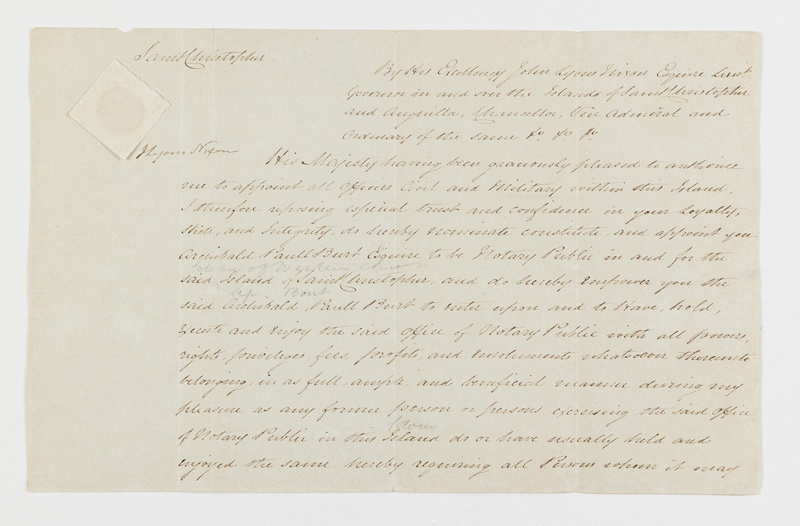 Saint Christopher
By His Excellency John Lyons Nixon Esquire Lieut
Governor in and over the Islands of Saint Christopher
and Anguilla, Chancellor, Vice Admiral and
Ordinary of the same &c. &c. &c.
J Lyons Nixon
His Majesty having been graciously pleased to authorize
me to appoint all officers Civil and Military within this Island,
I therefore reposing especial trust and confidence in your Loyalty,
Skill, and Integrity, do hereby nominate constitute and appoint you
Archibald Paull Burt Esquire to be Notary Public in and for the
said Island of Saint Christopher, and do hereby empower you the
said Archibald Paull Burt to enter upon and to Have, hold,
Execute and enjoy the said office of Notary Public with all powers,
rights, privileges, fees, profits, and emoluments whatsoever thereunto
belonging, in as full, ample, and beneficial manner during my
pleasure as any former person or persons exercising the said office
of Notary Public in this Island do or have usually held and
enjoyed the same hereby requiring all Persons whom it may